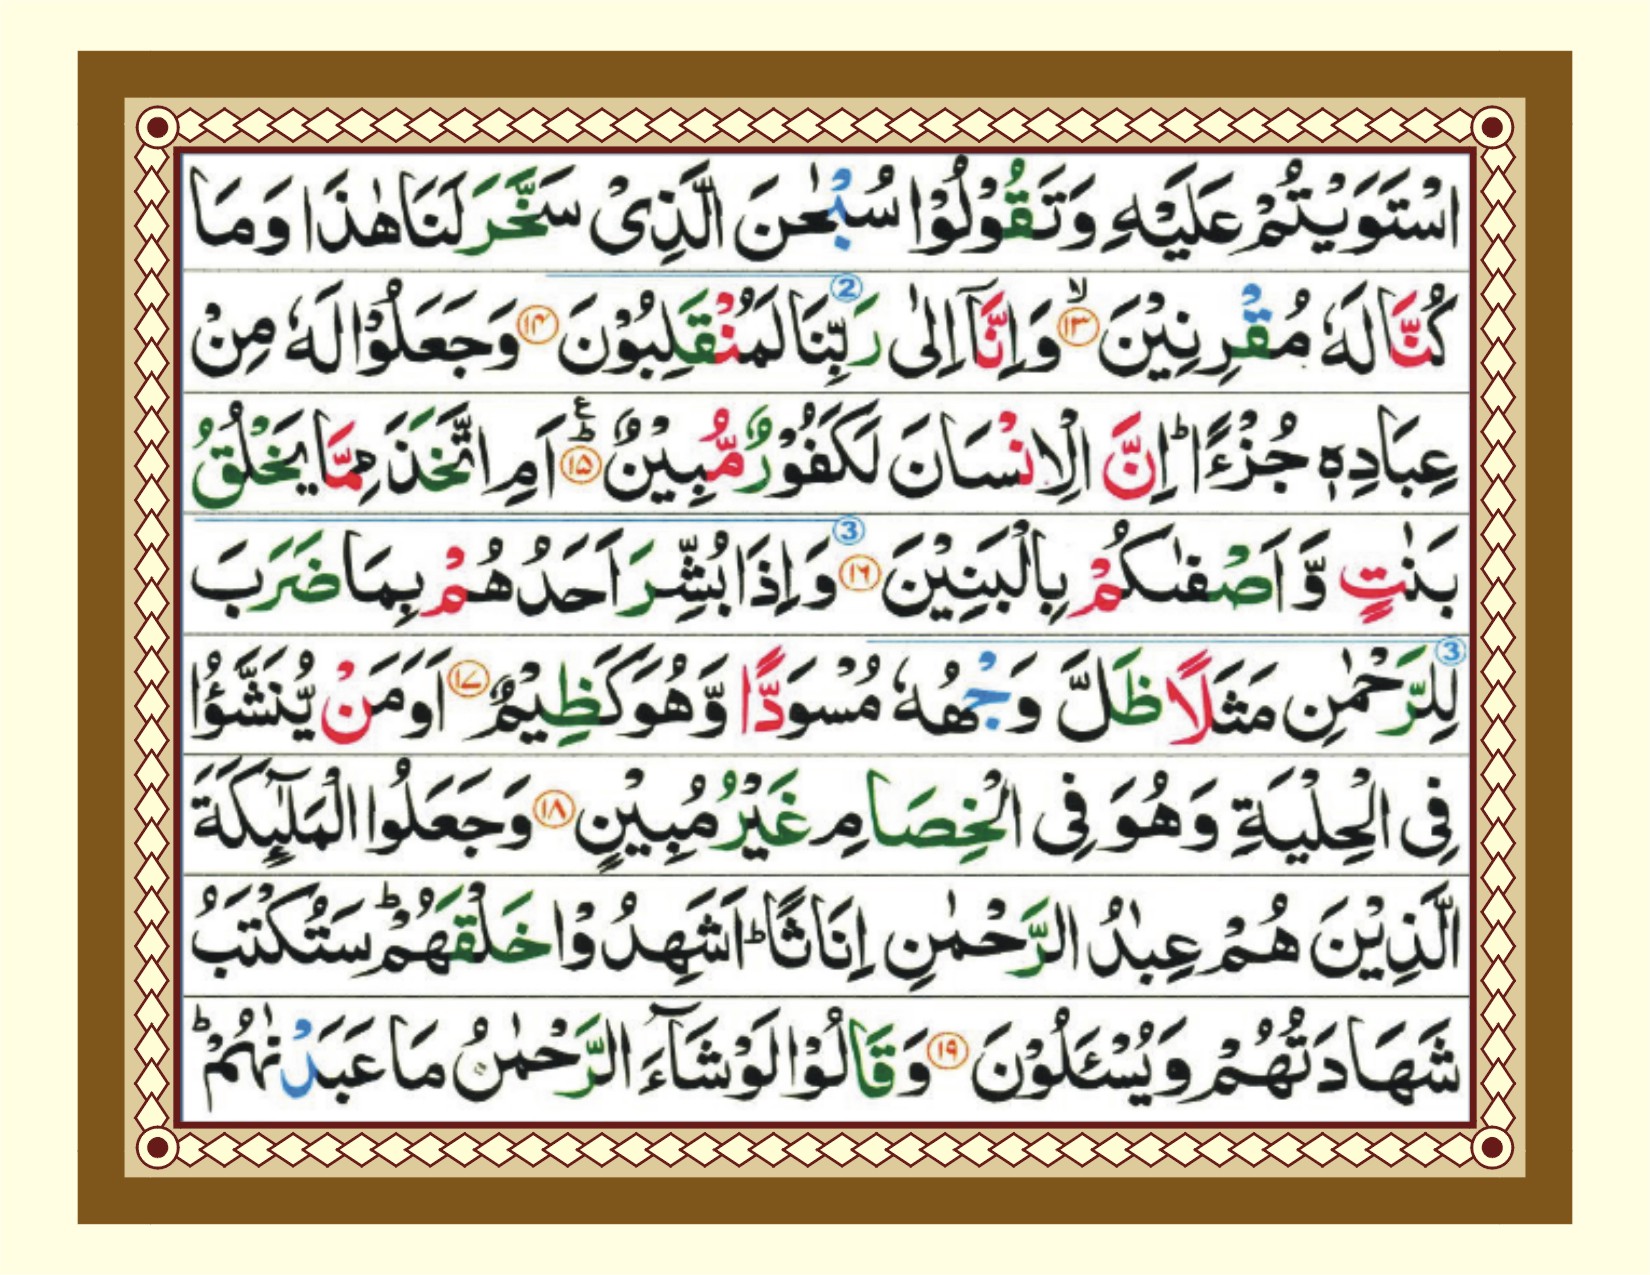 اسْتَوَيْتُمْ عَلَيْهِ وَتَقُوْلُوْا سُبْحٰنَ الَّذِىْ سَخَّرَ لَنَا هٰذَا وَمَا
كُنَّا لَهٗ مُقْرِنِيْنَ ۙ‏﴿۱۳﴾ وَاِنَّاۤ اِلٰى رَبِّنَا لَمُنْقَلِبُوْنَ ﴿۱۴﴾ وَجَعَلُوْا لَهٗ مِنْ
عِبَادِهٖ جُزْءًا ؕ اِنَّ الْاِنْسَانَ لَكَفُوْرٌ مُّبِيْنٌ ؕ﴿۱۵﴾ ع اَمِ اتَّخَذَ مِمَّا يَخْلُقُ
بَنٰتٍ وَّاَصْفٰٮكُمْ بِالْبَنِيْنَ ﴿۱۶﴾ وَاِذَا بُشِّرَ اَحَدُهُمْ بِمَا ضَرَبَ
لِلرَّحْمٰنِ مَثَلًا ظَلَّ وَجْهُهٗ مُسْوَدًّا وَّهُوَ كَظِيْمٌ ﴿۱۷﴾ اَوَمَنْ يُّنَشَّؤُا
فِى الْحِلْيَةِ وَهُوَ فِى الْخِصَامِ غَيْرُ مُبِيْنٍ ﴿۱۸﴾ وَجَعَلُوا الْمَلٰٓٮِٕكَةَ
الَّذِيْنَ هُمْ عِبٰدُ الرَّحْمٰنِ اِنَاثًا ؕ اَشَهِدُوْا خَلْقَهُمْ ؕ سَتُكْتَبُ
شَهَادَتُهُمْ وَيُسْـَٔلُوْنَ ﴿۱۹﴾ وَقَالُوْا لَوْ شَآءَ الرَّحْمٰنُ مَا عَبَدْنٰهُمْ ؕ